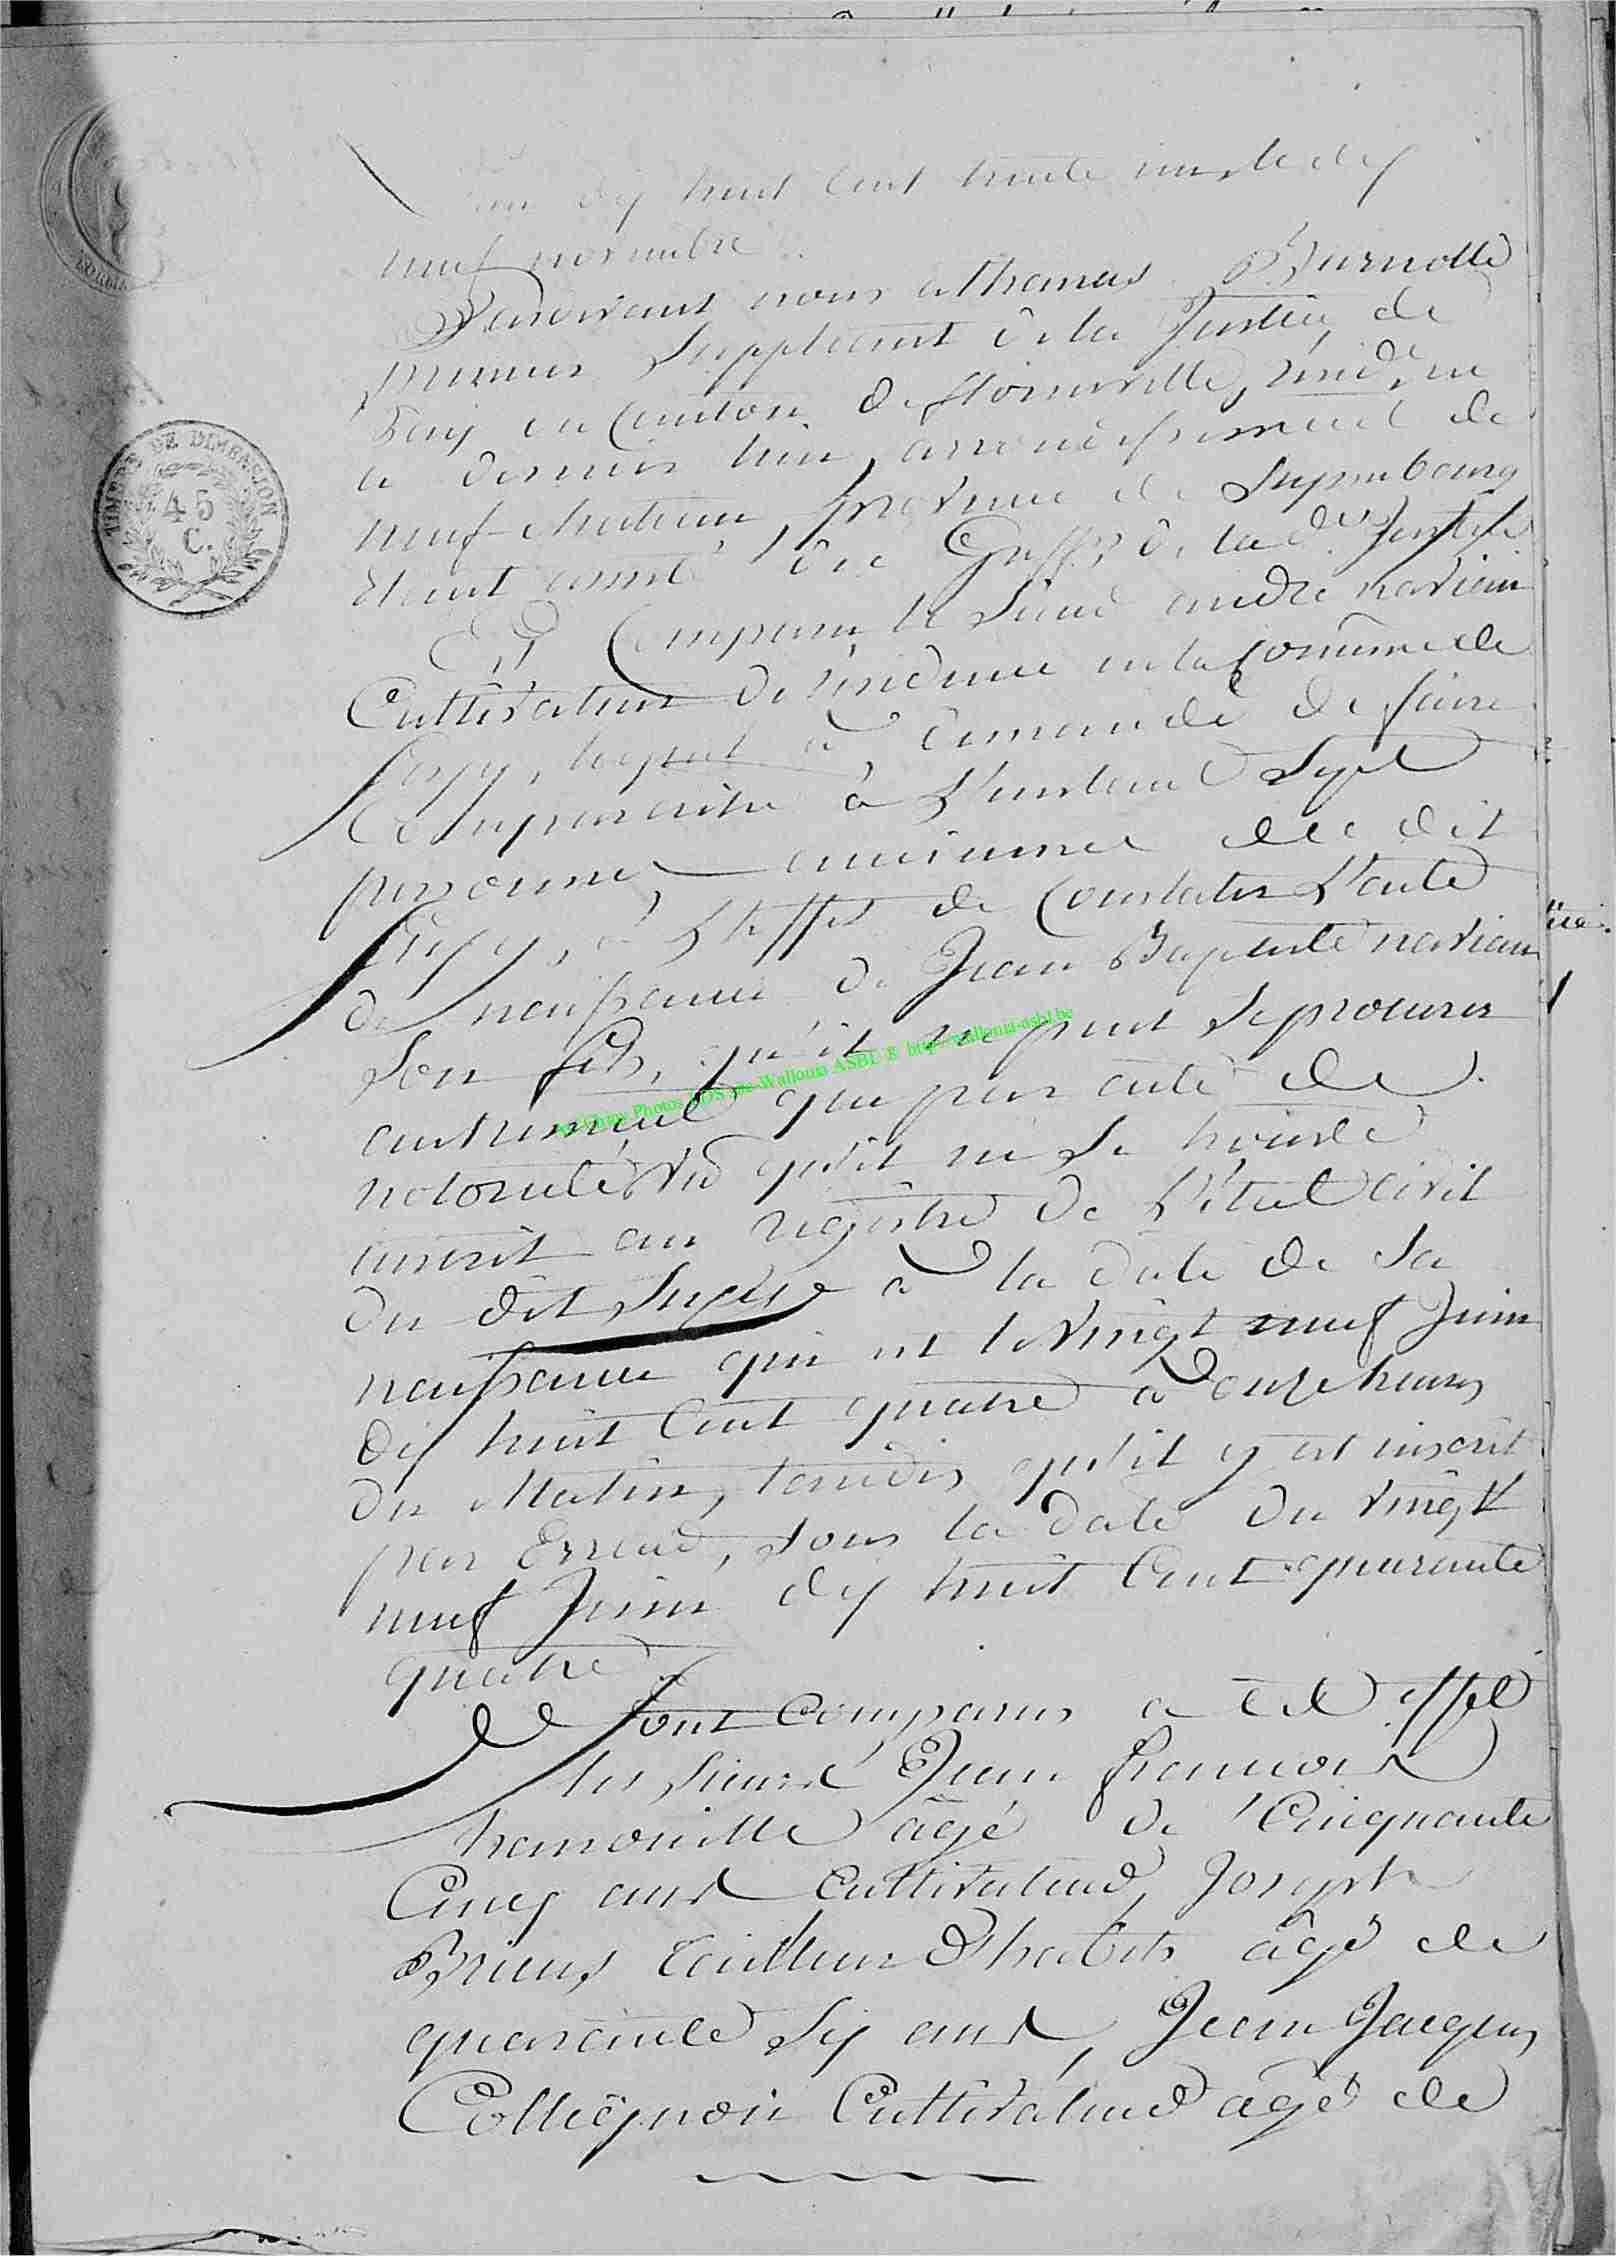 dix huit cent trente un, le dix
neuf novembre
Pardevant nous athanas Burnotte
premier Suppleant de la Justice de
Paix du Canton de florenville, resid. en
ce dernier lieu, arrondissement de
neufchateau, province de Luxembourg
etant assisté du Greff. de la de. Justice
Est Comparu le Sieur andré naviaux
Cultivateur de residence en la Commune de
lequel a demandé de faire
Comparaitre à L'instant Sept
personnes, du dit
à L'effet de Constater L'acte
de naissance de Jean Baptiste naviaux
Son fils, qu'il ne peut se procurer
autrement que par acte de
notorieté, vu qu'il ne se trouve
inscrit au registre de L'état civil
du dit à la date de sa
naissance qui est le vingt neuf Juin
dix huit Cent quatre à onze heures
du Matin, tandis qu'il y est inscrit
par Erreur, sous la date du vingt
neuf Juin dix huit Cent quarante
quatre
Sont Comparus a cet effet
les Sieurs Jean francois
âgé de Cinquante
Cinq ans Cultivateur, Joseph
tailleur d'habits âgé de
quarante Six ans, Jean Jacques
Collignon Cultivateur agé de
TIMBRE DE DIMENSION
45
C.
Photos Wallonia ASBL & http://wallonia-asbl.be